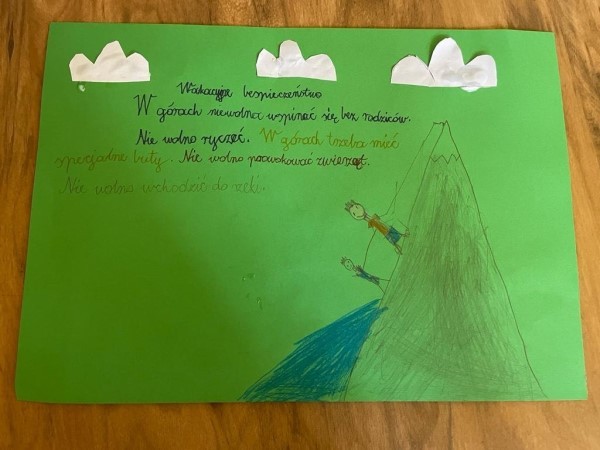 Wakacyjne bespieczeństwo
W górach niewolna wspinać się bez rodziców.
Nie wolno ryczeć. W górach trzeba mieć
specjalne buty. Nie wolno prowokować zwierząt.
Nie wolno wchodzić do rzeki.